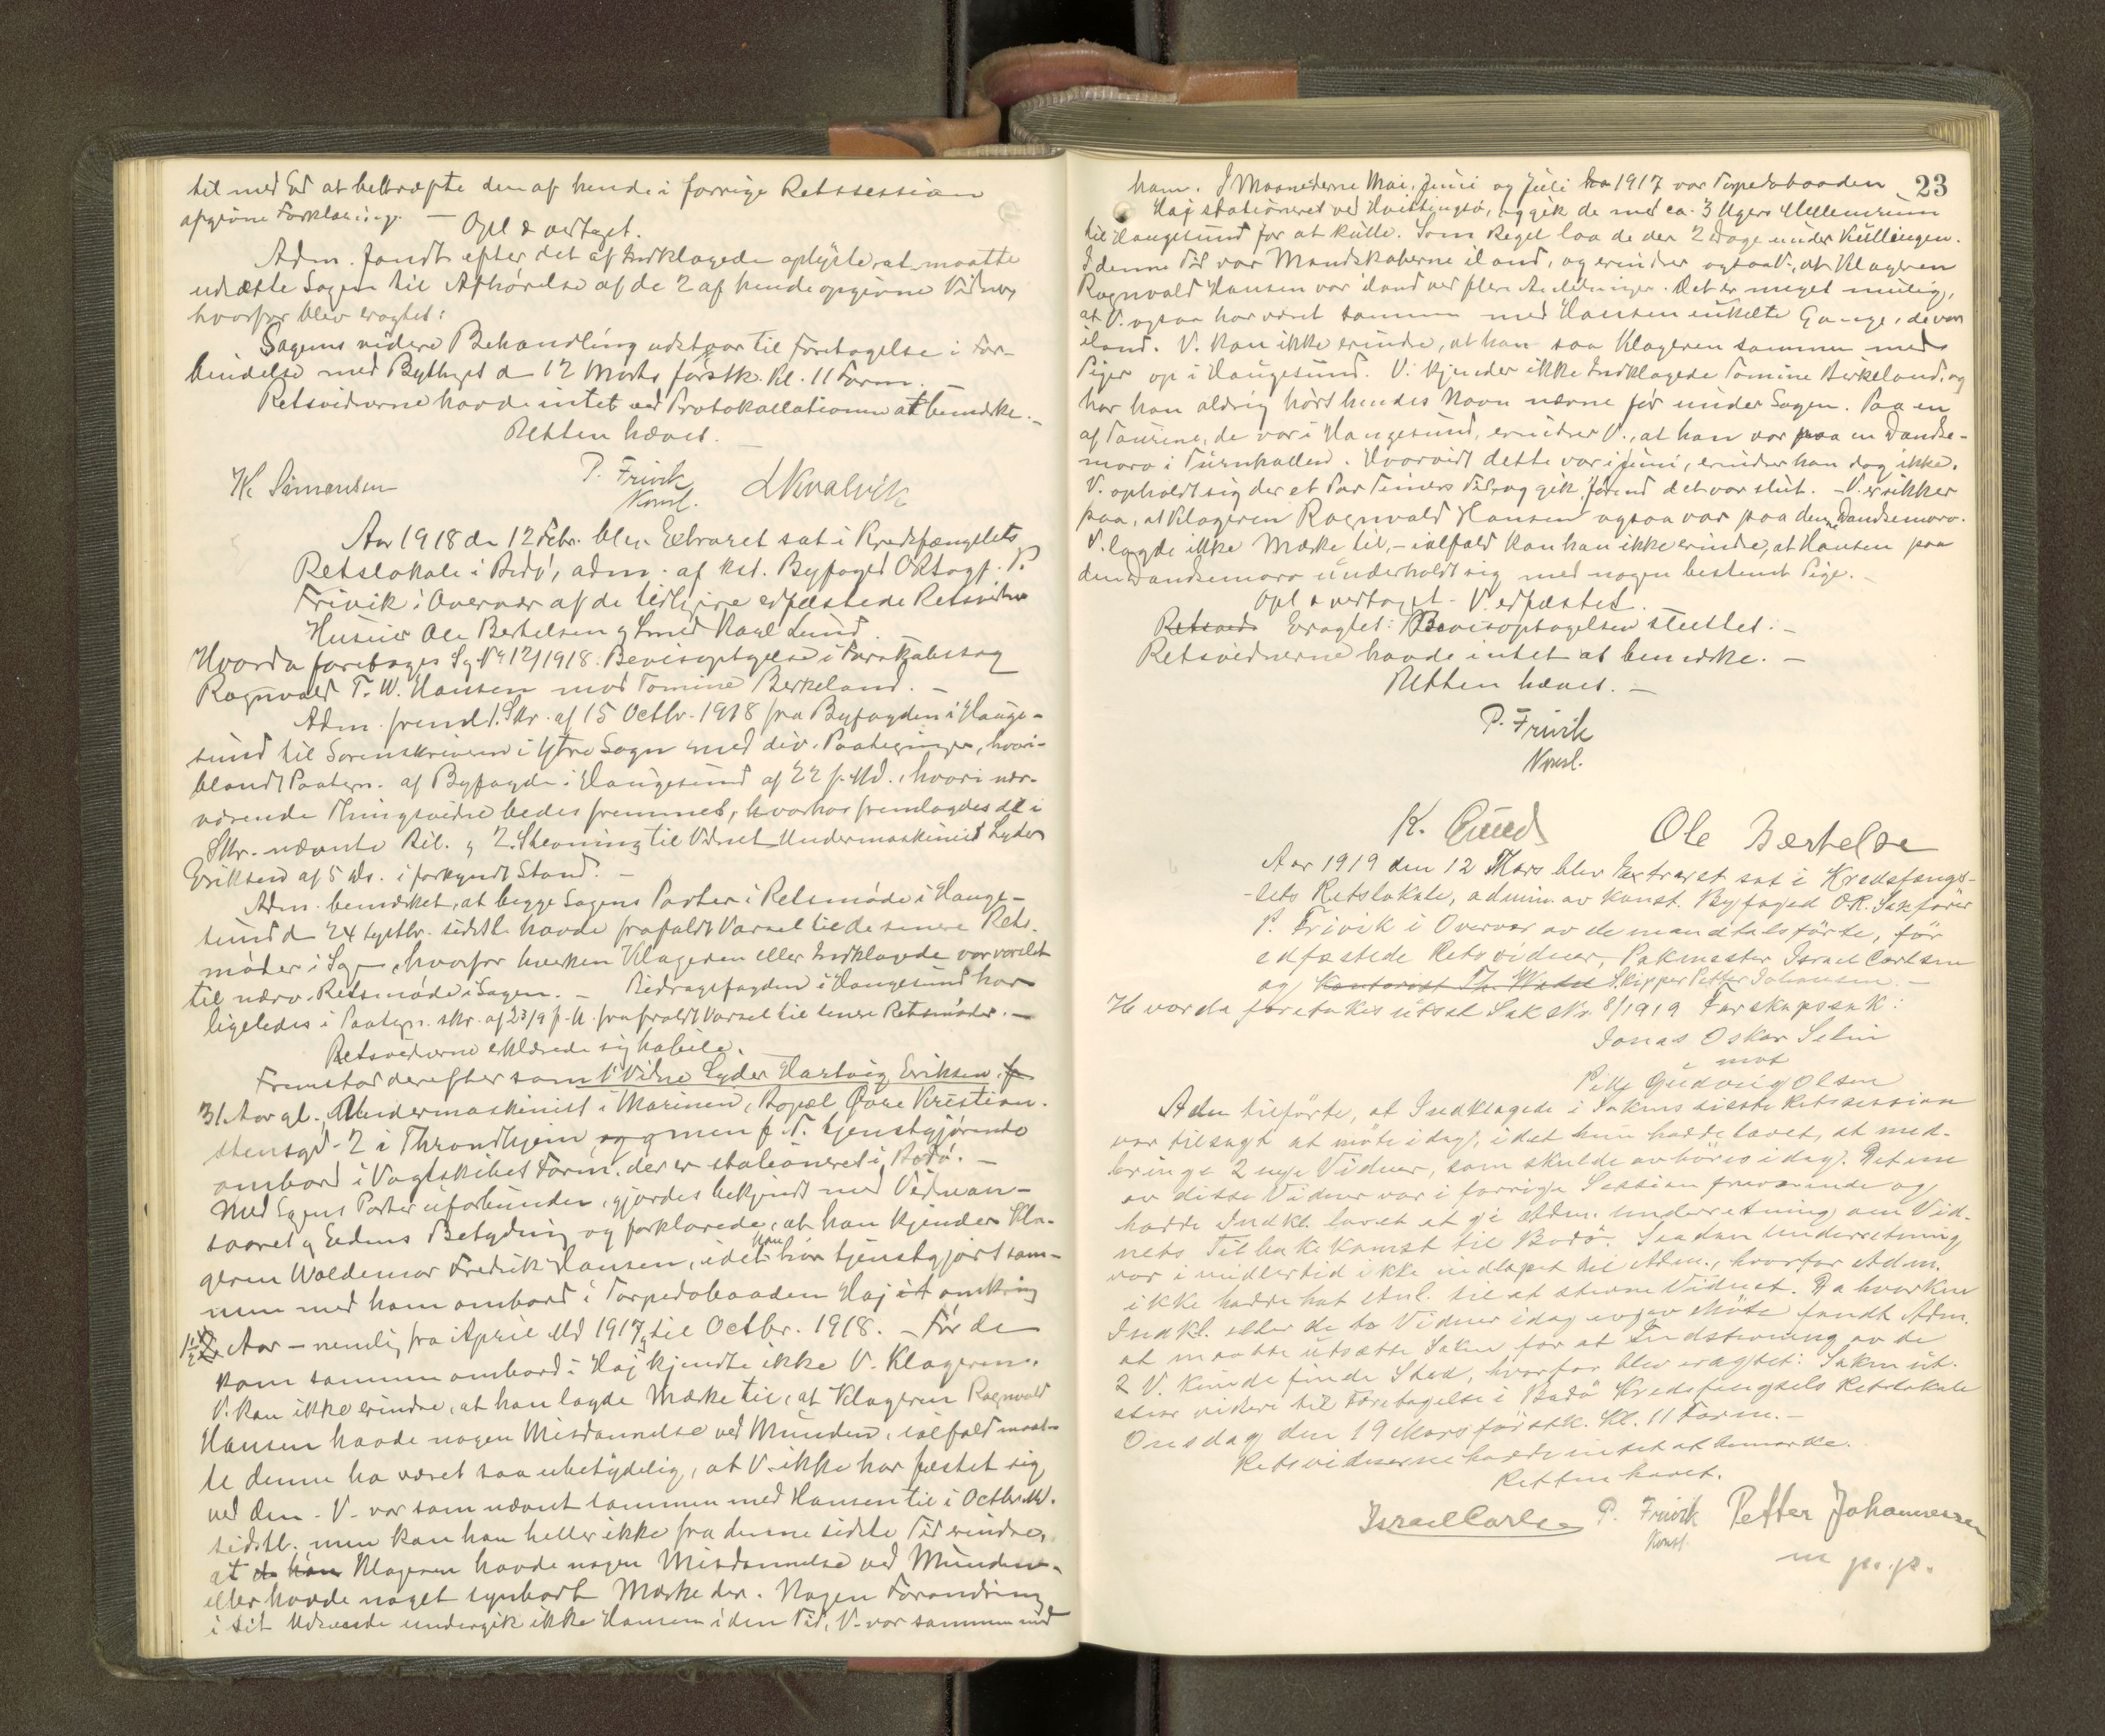 til med Ed at bekræfte den af hende i forrige Retssession
afgivne Forklaring. — Opl & vedtaget.
Adm. fandt efter det af Indklagede oplyste, at maatte
udsætte Sagen til Afhørelse af de 2 af hende opgivne Vidner,
hvorfor blev eragtet:
Sagens videre Behandling udstaar til Foretagelse i For-
bindelse med Bythinget d 12 Marts førstk. Kl. 11 Form. —
Retsvidnerne havde intet ved Protokollationen at bemærke. —
Retten hævet. —
K. Simonsen P. Frivik Konst. Kvalvik
Aar 1918 den 12 Febr. blev Extraret sat i Kredsfængslets
Retslokale i Bodø, adm. af kst. Byfoged ORsagf. P.
Frivik i Overvær af de tidligere edfæstede Retsvidner
Huseier Ole Bertelsen & Smed Karl Lund.
Hvorda foretoges Sg No 12/1918. Bevisoptagelse i Farskabssag
Ragnvald T. W. Hansen mod Tomine Berkeland. —
Adm. freml. Skr. af 15 Octbr. 1918 fra Byfogden i Hauge-
sund til Sorenskriveren i Ytre Sogn med div. Paategninger, hvori-
blandt Paategn. af Byfogden i Haugesund af 22 f. Md., hvori nær-
værende Thingsvidne bedes fremmet, hvorhos fremlagdes de i
Skr. nævnte Bil. & 2. Stevning til Vidnet Undermaskinist Lyder
Eriksen af 5 ds. i forkyndt Stand. —
Adm. bemærket, at begge Sagens Parter i Retsmøde i Hauge-
sund d 24 Septbr. sidstl. havde frafaldt Varsel til de senere Rets-
møder i Sagen, hvorfor hverken Klageren eller Indklagede var varslet
til nærv. Retsmøde i Sagen. — Bidragsfogden i Haugesund har
ligeledes i Paategn. skr. af 23/9 f. A. frafaldt Varsel til senere Retsmøder. —
Retsvidnerne erklærede sig habile.
Fremstod derefter som 1' Vidne Lyder Hartvig Eriksen,
31 Aar gl., Undermaskinist i Marinen, Bopæl Øvre Kristian-
stensgd. 2 i Throndhjem men f. T. tjenstgjørende
ombord i Vagtskibet Farm, der er stationeret i Bodø. —
Med Sagens Parter uforbunden, gjordes bekjendt med Vidnean-
svaret & Eedens Betydning og forklarede, at han kjender Kla-
geren Waldemar Fredrik Hansen, idet han har tjenstgjort sam-
men med ham ombord i Torpedobaaden Haj i omkring
1 1/2 Aar — nemlig fra i April Md 1917 til Octbr. 1918. — Før de
kom sammen ombord i Haj kjendte ikke V. Klageren.
V. kan ikke erindre, at han lagde Mærke til, at Klageren Ragnvald
Hansen havde nogen Misdannelse ved Munden, ialfald maat-
te denne ha været saa ubetydelig, at V. ikke har fæstet sig
ved den. V. var som nævnt sammen med Hansen til i Octbr. Md.
sidstl. men kan han heller ikke fra denne sidste Tid erindre,
at Klageren havde nogen Misdannelse ved Munden
eller havde noget synbart Mærke der. Nogen Forandring
i sit Udseende undergik ikke Hansen i den Tid, V. var sammen med
23
ham. I Maanederne Mai, Juni og Juli 1917 var Torpedobaaden
Haj stationeret ved Hvittingsø, og gik de med ca. 3 Ugers Mellemrum
til Haugesund for at kulle. Som Regel laa de der 2 Dage under Kullingen.
I denne Tid var Mandskaberne iland, og erindrer ogsaa V., at Klageren
Ragnvald Hansen var iland ved flere Anledninger. Det er meget mulig,
at V. ogsaa har været sammen med Hansen enkelte Gange, de var
iland. V. kan ikke erindre, at han saa Klageren sammen med
Piger op i Haugesund. V. kjender ikke Indklagede Tomine Berkeland, og
har han aldrig hørt hendes Navn nævne før under Sagen. Paa en
af Tourene, de var i Haugesund, erindrer V., at han var paa en Dandse-
moro i Turnhallen. Hvorvidt dette var i Juni, erindrer han dog ikke.
V. opholdt sig der et Par Timers Tid og gik førend det var slut. — V. er sikker
paa, at Klageren Ragnvald Hansen ogsaa var paa denne Dandsemoro.
V. lagde ikke Mærke til, — ialfald kan han ikke erindre, at Hansen paa
den Dandsemoro underholdt sig med nogen bestemt Pige. —
Opl & vedtaget — V. edfæstet.
Eragtet: Bevisoptagelsen sluttet. —
Retsvidnerne havde intet at bemærke. —
Retten hævet. —
P. Frivik
Konst.
K. Lund Ole Bertelsen
Aar 1919 den 12 Mars blev Extraret sat i Kredsfængs-
lets Retslokale, admin. av konst. Byfoged O.R. Sakfører
P. Frivik i Overvær av de mandtalsførte, før
edfæstede Retsvidner, Pakmester Israel Carlsen
og Kontorist Th. Wadel Skipper Petter Johansen. —
Hvorda foretokes utsat Sak No. 8/1919 Farskapssak:
Jonas Oskar Selin
mot
Gudvig Olsen
Adm tilførte, at Indklagede i Sakens sidste Retssession
var tilsagt at møte idag, idet hun hadde lovet, at med-
bringe 2 nye Vidner, som skulde avhøres idag. Det ene
av disse Vidner var i forrige Session fraværende og
hadde Indkl. lovet at gi Adm. Underretning om Vid-
nets Tilbakekomst til Bodø. Saadan Underretning
var imidlertid ikke indløpet til Adm., hvorfor Adm.
ikke hadde hat Anl. til at stevne Vidnet. Da hverken
Indkl. eller de to Vidner idag møte fandt Adm.
at maatte utsætte Saken for at Indstevning av de
2 V. kunde finde Sted, hvorfor blev eragtet: Saken ut-
staar videre til Foretagelse i Bodø Kredsfengsels Retslokale
Onsdag den 19 Mars førstk. Kl. 11 Form. —
Retsvidnerne hadde intet at bemærke.
Retten hævet.
Israel Carlsen P. Frivik Konst. Petter Johannessen
m p. p.